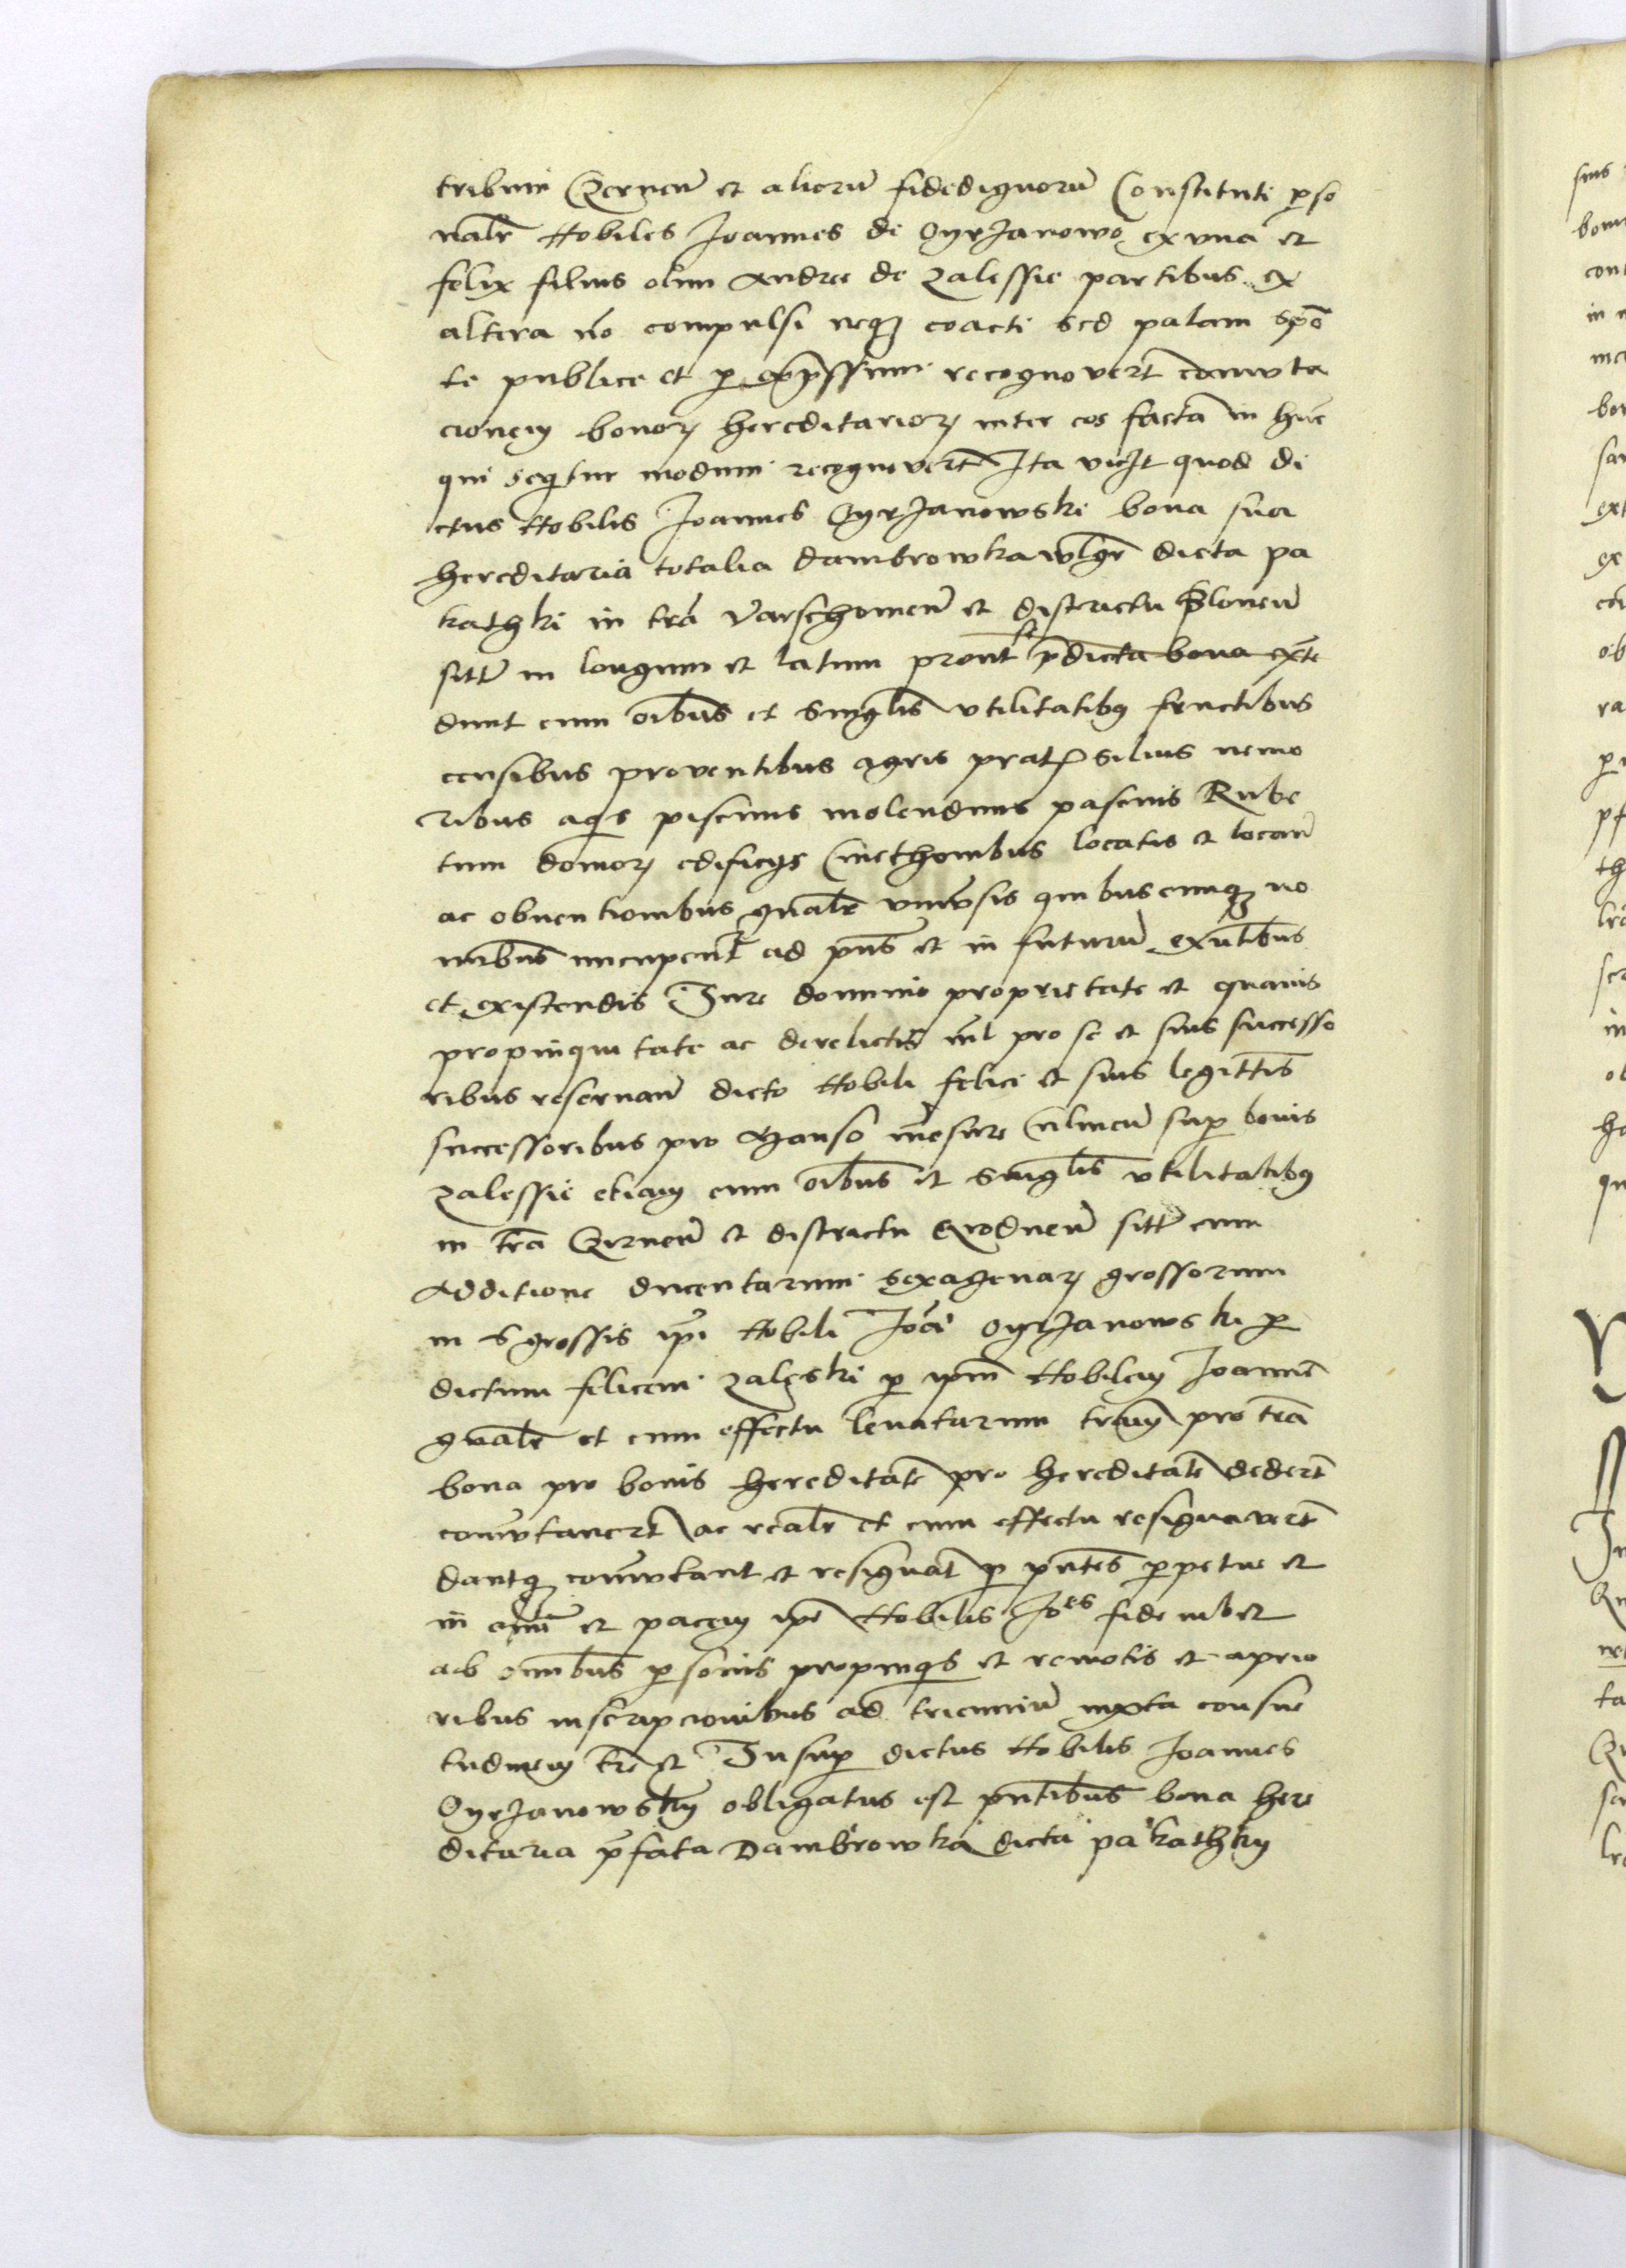 tribuni Czernen̄ et aliorū fidedignorū Constituti p̱so
nalr̄ Nobiles Joannes de Oyrzanowo ex vna et
felix filius olim Andree de Zalessie partibus ex
altera nō compulsi neqȝ coacti sed palam spō
te publice et p̱ exp̄ssum recognovert̄ com̄vta
cionem bonoꝝ hereditarioꝝ inter eos factā in hūc
qui seqͥtur modum recognovert̄ Ita vicꝫ quod di
ctus Nobilis Joannes Oyrzanowski bona sua
hereditaria totalia Dambrowka wlgr̄ dicta pa
kathki in trā Varschowien̄ et districtu Blonen̄
sitt̄ in longum et latum prout se p̄dicta bona extē
dunt cum oībus et singlis̄ vtilitatibꝰ fructibus
censibus proventibus agris prat̄ silvis nemo
ribus aqͥs piscinis molendinis pascuis Rube
tum domoꝝ edificijs Cmethonibus locatis et locan̄
ac obuentionibus gn̄alr̄ vniūsis quibuscunqȝ no
mībus nuncupent̄ ad pn̄s et in futurū exn̄tibus
et existendis Jure dominio proprietate et quauis
propinquitate ac derelictis nīl pro se et suis successo
ribus reseruan̄ dicto Nobili felici et suis legittīs
successoribus pro Manso mēsure Culmen̄ sup̱ bonis
Zalessie etiam cum oībus et singlis̄ vtilitatibꝰ
in trā Czirnen̄ et districtu Grodnen̄ sitt̄ cum
Additione ducentarum sexagenaꝝ grossorum
in 5 grossis ip̄i Nobili Joā̄i Oyrzanowski p̱
dictum felicem Zaleski p̱ ipm̄ Nobilem Joannē
gn̄alr̄ et cum effectu leuatarum trām pro trā
bona pro bonis hereditatē pro hereditatē dedert̄
com̄vtauert̄ ac realr̄ et cum effectu resignavert̄
dantqȝ com̄vtant et resignāt p̱ pn̄tes p̱petue et
in evū et pacem ip̄e Nobilis Joes fide iubet
ab om̄ibus p̱sonis propinqͥs et remotis et a prio
ribus inscripcionibus ad triennium iuxta consue
tudinem trē et Insup̱ dictus Nobilis Joannes
Oyrzanowsky obligatus est pn̄tibus bona here
ditaria p̄fata Dambrowka dicta pakathky